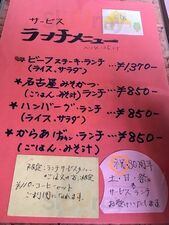 サービス
ランチメニュー
ビーフステーキ・ランチ …¥1,370-
(ライス、サラダ)
★名古屋みそかつ・ランチ …¥850-
(ごはん・みそ汁)
★ハンバーグ・ランチ …¥850-
(ライス、サラダ)
★からあげ・ランチ …¥850-
(ごはん・みそ汁)
祝30周年
土・日・祭も
サービスランチ
お受けいたします